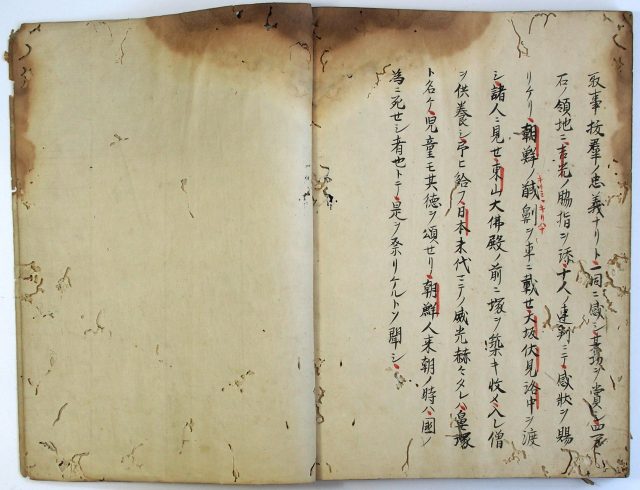 敢事抜羣ノ忠義ナリト一同ニ感シ其功ヲ賞シ四万
石ノ領地ニ吉光ノ脇指ヲ添十人ノ連判ニテ感状ヲ賜
リケリ朝鮮ノ馘劓ヲ車ニ載セ大坂伏見洛中ヲ渡
シ諸人ニ見セ東山大佛殿ノ前ニ塚ヲ築キ收メ入レ僧
ヲ供養シ弔ヒ給フ日本末代マテノ威光赫々タレハ鼻塚
ト名ケ児童モ其徳ヲ頌セリ朝鮮人来朝ノ時ハ國ノ
為ニ死セシ者也トテ是ヲ祭リケルトソ聞シ